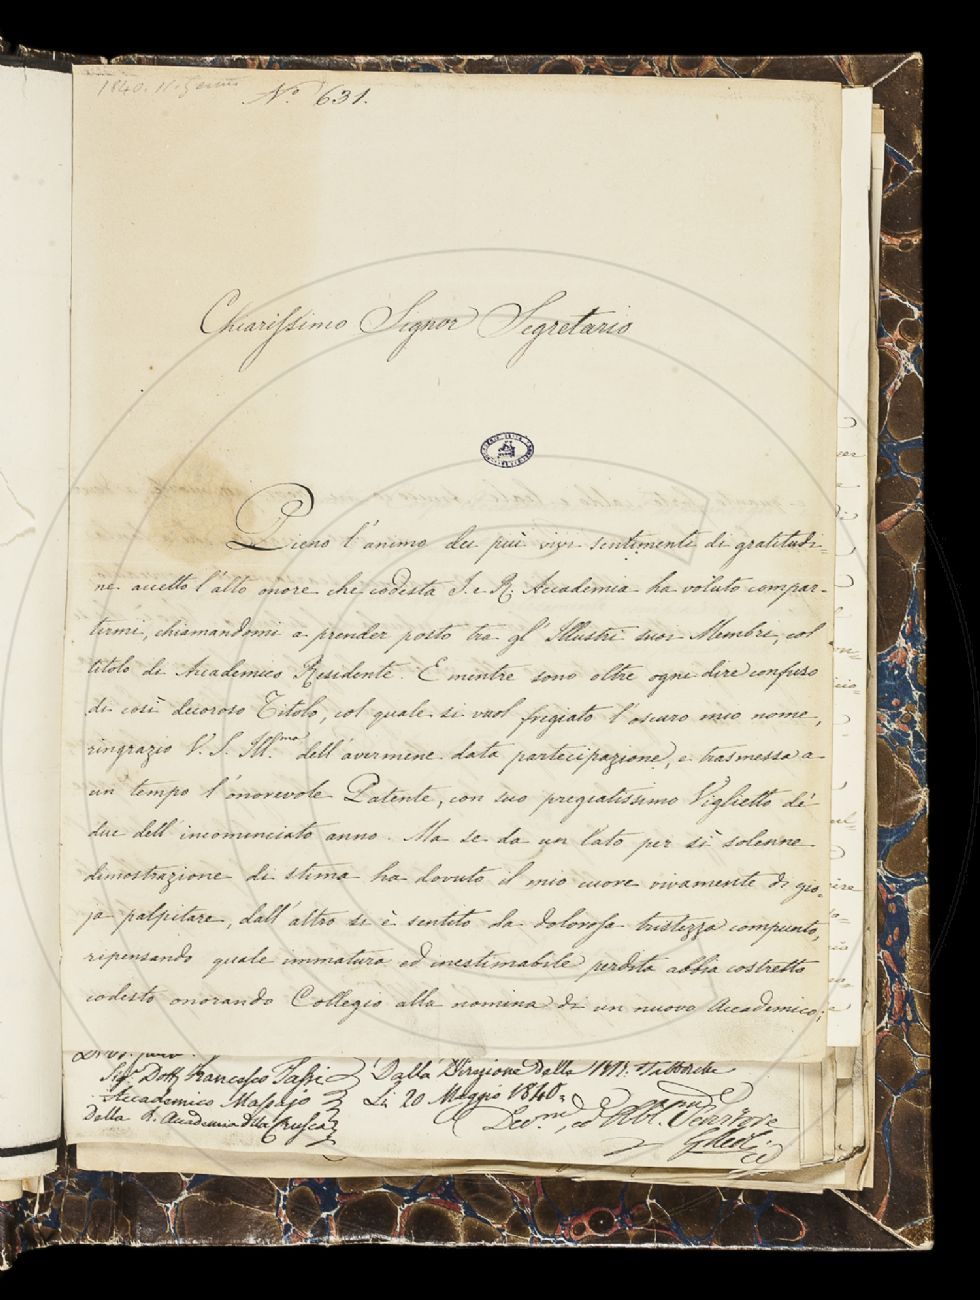 1840. 11. Genn.
N.º 631.
Chiarissimo Signor Segretario
Pieno l'animo dei più vivi sentimenti di gratitudi-
ne accetto l'alto onore che codesta I. e R. Accademia ha voluto compar-
tirmi, chiamandomi a prender posto tra gl'Illustri suoi Membri, col
titolo di Accademico Residente. E mentre sono oltre ogni dire confuso
di così decoroso Titolo, col quale si vuol fregiato l'oscuro mio nome,
ringrazio V. S. Ill.ma dell'avermene data partecipazione, e trasmessa a
un tempo l'onorevole Patente, con suo pregiatissimo Viglietto de'
due dell'incominciato anno. Ma se da un lato per sì solenne
dimostrazione di stima ha dovuto il mio cuore vivamente di gio-
ja palpitare, dall'altro si è sentito da dolorosa tristezza compunto,
ripensando quale immatura ed inestimabile perdita abbia costretto
codesto onorando Collegio alla nomina di un nuovo Accademico;
Sig.r Dott. Francesco Tassi
Accademico Massajo
Della R. Accademia della Crusca
Dalla Direzione della
Li 20 Maggio 1840.
Dev.mo ed Obb.